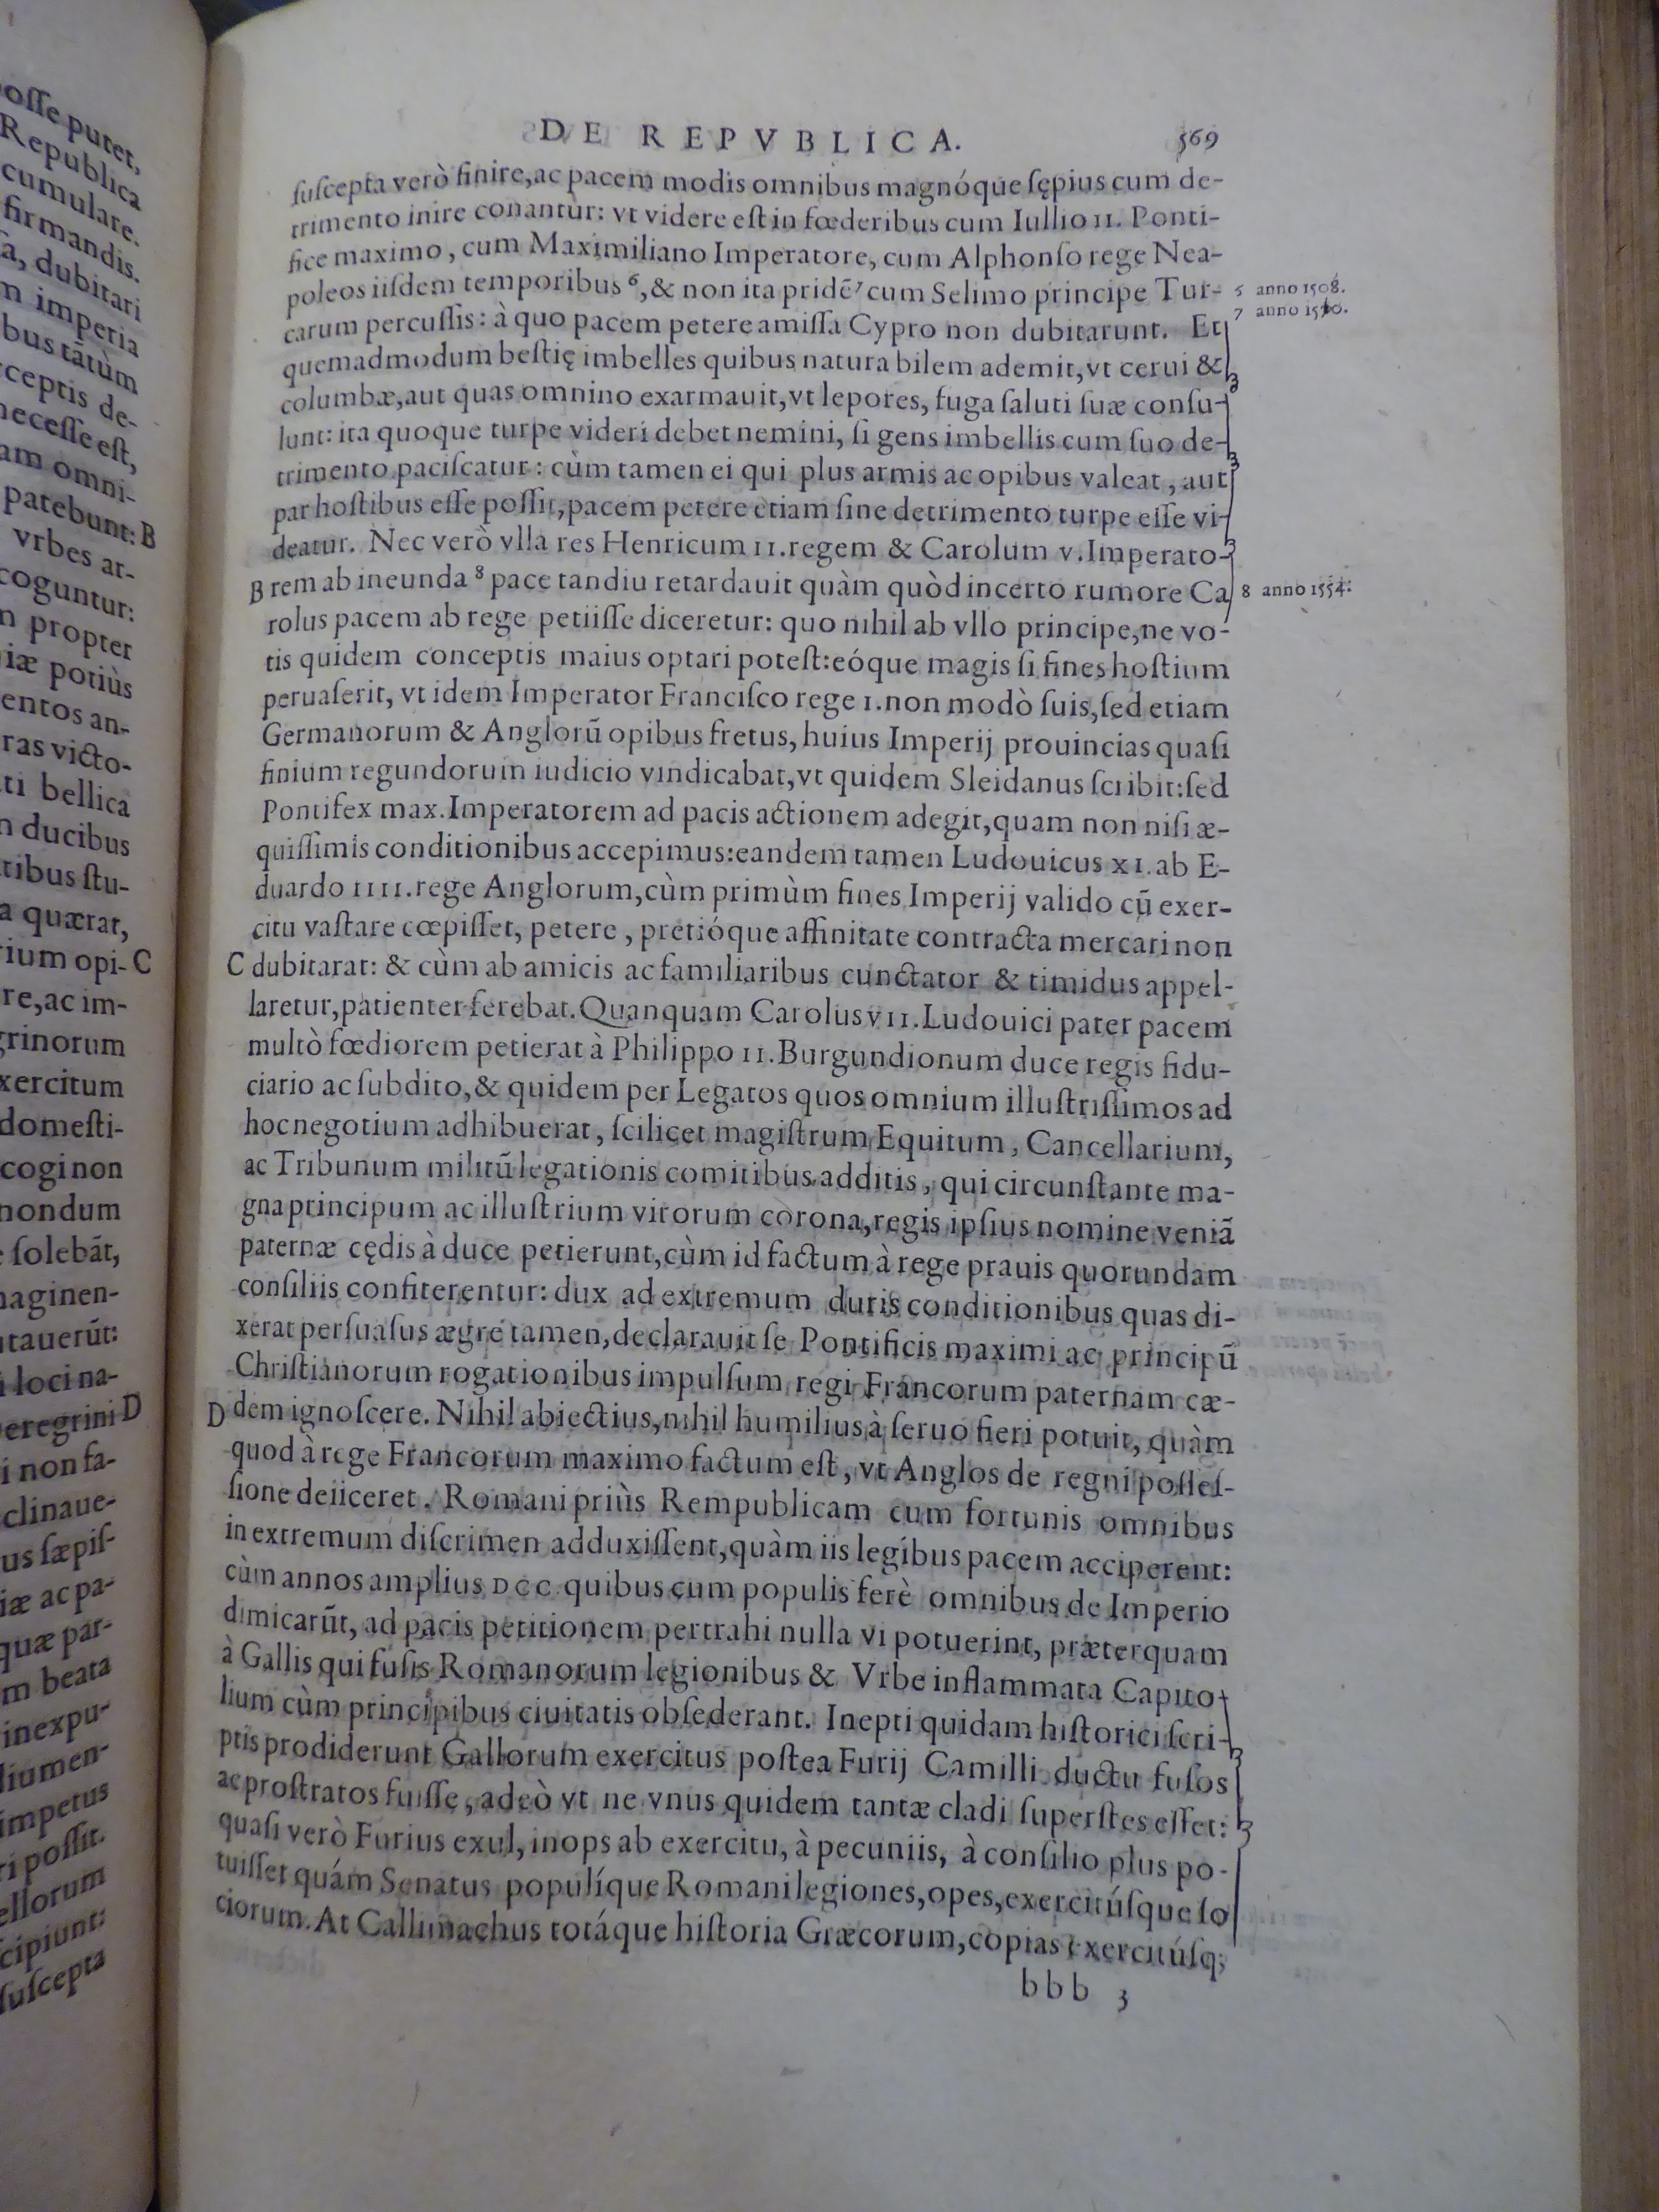 osse putet,
Republica
cumulare.
firmandis.
a, dubitari
m imperia
bus tãtùm
ceptis de-
necesse est,
am omni-
patebunt: B
vrbes ar-
coguntur:
n propter
iæ potiùs
entos an-
ras victo-
ti bellica
n ducibus
tibus stu-
a quærat,
rium opi- C
re, ac im-
grinorum
xercitum
domesti-
cogi non
nondum
solebãt,
maginen-
tauerũt:
i loci na-
peregrini D
i non fa-
clinaue-
us sæpis-
iæ ac pa-
quæ par-
m beata
inexpu-
lium en-
impetus
ri possit.
ellorum
cipiunt:
suscepta
DE REPVBLICA. 569
ſuſcepta verò finire, ac pacem modis omnibus magnóque ſępius cum de-
trimento inire conantùr: vt videre eſt in fœderibus cum Iullio II. Ponti-
fice maximo, cum Maximiliano Imperatore, cum Alphonſo rege Nea-
poleos iiſdem temporibus ⁶, & non ita pridẽ ⁷ cum Selimo principe Tur-
carum percuſſis: à quo pacem petere amiſſa Cypro non dubitarunt. Et
quemadmodum beſtię imbelles quibus natura bilem ademit, vt cerui &
columbæ, aut quas omnino exarmauit, vt lepores, fuga ſaluti ſuæ conſu-
lunt: ita quoque turpe videri debet nemini, ſi gens imbellis cum ſuo de-
trimento paciſcatur: cùm tamen ei qui plus armis ac opibus valeat, aut
par hoſtibus eſſe poſſit, pacem petere etiam ſine detrimento turpe eſſe vi-
deatur. Nec verò vlla res Henricum II. regem & Carolum V. Imperato-
B rem ab ineunda ⁸ pace tandiu retardauit quàm quòd incerto rumore Ca
rolus pacem ab rege petiiſſe diceretur: quo nihil ab vllo principe, ne vo-
tis quidem conceptis maius optari poteſt: eóque magis ſi fines hoſtium
peruaſerit, vt idem Imperator Franciſco rege I. non modò ſuis, ſed etiam
Germanorum & Anglorũ opibus fretus, huius Imperij prouincias quaſi
finium regundorum iudicio vindicabat, vt quidem Sleidanus ſcribit: ſed
Pontifex max. Imperatorem ad pacis actionem adegit, quam non niſi æ-
quiſſimis conditionibus accepimus: eandem tamen Ludouicus XI. ab E-
duardo IIII. rege Anglorum, cùm primùm fines Imperij valido cũ exer-
citu vaſtare cœpiſſet, petere, pretióque affinitate contracta mercari non
C dubitarat: & cùm ab amicis ac familiaribus cunctator & timidus appel-
laretur, patienter ferebat. Quanquam Carolus VII. Ludouici pater pacem
multò fœdiorem petierat à Philippo II. Burgundionum duce regis fidu-
ciario ac ſubdito, & quidem per Legatos quos omnium illuſtriſſimos ad
hoc negotium adhibuerat, ſcilicet magiſtrum Equitum, Cancellarium,
ac Tribunum militũ legationis comitibus additis, qui circunſtante ma-
gna principum ac illuſtrium virorum corona, regis ipſius nomine veniã
paternæ cędis à duce petierunt, cùm id factum à rege prauis quorundam
conſiliis confiterentur: dux ad extremum duris conditionibus quas di-
xerat perſuaſus ægre tamen, declarauit ſe Pontificis maximi ac principũ
Chriſtianorum rogationibus impulſum regi Francorum paternam cæ-
D dem ignoſcere. Nihil abiectius, nihil humilius à ſeruo fieri potuit, quàm
quod à rege Francorum maximo factum eſt, vt Anglos de regni poſſeſ-
ſione deiiceret. Romani priùs Rempublicam cum fortunis omnibus
in extremum diſcrimen adduxiſſent, quàm iis legíbus pacem acciperent:
cùm annos amplius DCC. quibus cum populis ferè omnibus de Imperio
dimicarũt, ad pacis petitionem pertrahi nulla vi potuerint, præterquam
à Gallis qui fuſis Romanorum legionibus & Vrbe inflammata Capito
lium cùm principibus ciuitatis obſederant. Inepti quidam hiſtorici ſcri-
ptis prodiderunt Gallorum exercitus poſtea Furij Camilli ductu fuſos
ac proſtratos fuiſſe, adeò vt ne vnus quidem tantæ cladi ſuperſtes eſſet:
quaſi verò Furius exul, inops ab exercitu, à pecuniis, à conſilio plus po-
tuiſſet quám Senatus populíque Romani legiones, opes, exercitúſque ſo
ciorum. At Callimachus totáque hiſtoria Græcorum, copias exercitúſq;
bbb 3
5 anno 1508.
7 anno 1570.
8 anno 1554.